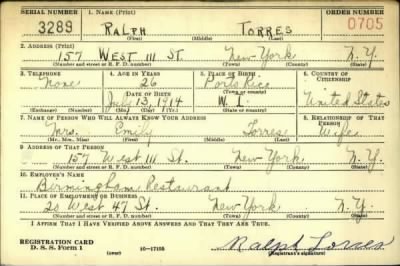 SERIAL NUMBER 1. NAME (Print) ORDER NUMBER
3289 RALPH TORRES 0705
(First) (Middle) (Last)
2. ADDRESS (Print)
157 WEST 111 ST. New York N.Y.
(Number and street or R. F. D. number) (Town) (County) (State)
3. TELEPHONE 4. AGE IN YEARS 5. PLACE OF BIRTH 6. COUNTRY OF CITIZENSHIP
None 26 Porto Rico
DATE OF BIRTH
July 13, 1914 W. I. United States
(Exchange) (Number) (Mo.) (Day) (Yr.) (State or country)
7. NAME OF PERSON WHO WILL ALWAYS KNOW YOUR ADDRESS 8. RELATIONSHIP OF THAT PERSON
Mrs. Emily Torres Wife
(Mr., Mrs., Miss) (First) (Middle) (Last)
9. ADDRESS OF THAT PERSON
157 West 111 St. New York N.Y.
(Number and street or R. F. D. number) (Town) (County) (State)
10. EMPLOYER'S NAME
Birmingham Restaurant
11. PLACE OF EMPLOYMENT OR BUSINESS
20 West 47 St. New York N.Y.
(Number and street or R. F. D. number) (Town) (County) (State)
I AFFIRM THAT I HAVE VERIFIED ABOVE ANSWERS AND THAT THEY ARE TRUE.
REGISTRATION CARD
D. S. S. Form 1 (over) 16—17105 Ralph Torres
(Registrant's signature)